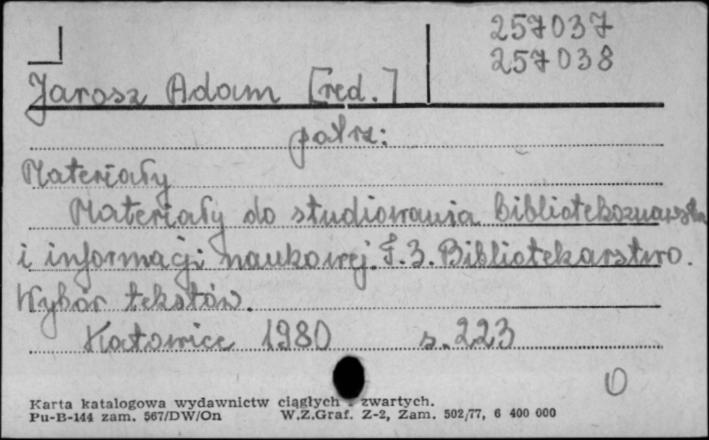 257037
257038
Jarosz Adam [red.]
patrz:
Materiały
Materiały do studiowania bibliotekoznawstwa
i informacji naukowej. T.3. Bibliotekarstwo.
Wybór tekstów.
Katowice 1980 s. 223
Karta katalogowa wydawnictw ciągłych zwartych.
Pu-B-144 zam. 567/DW/On W.Z.Graf. Z-2, Zam. 502/77, 6 400 000